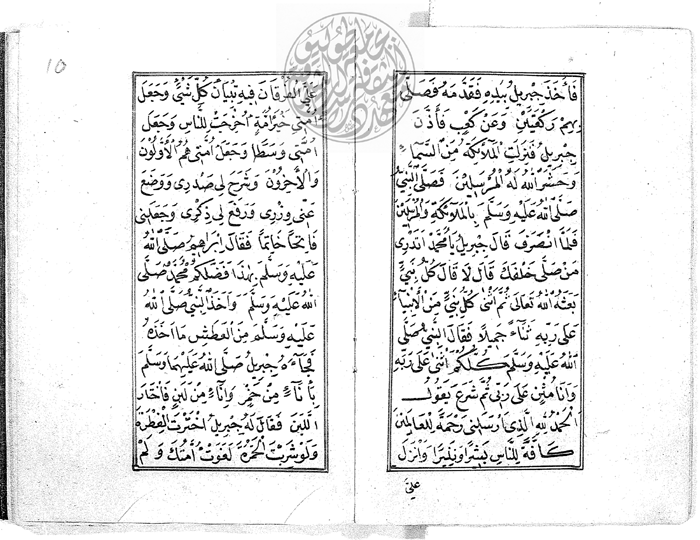 فأخذ جبريل بيده فقدمه فصلى
بهم ركعتين وعن كعب فأذن
جبريل فنزلت الملائكة من السماء
وحشر الله له المرسلين فصلى النبي
صلى الله عليه وسلم بالملائكة والمرسلين
فلما انصرف قال جبريل يا محمد اتدري
من صلى خلفك قال لا قال كل نبي
بعثه الله تعالى ثم اثنى كل نبي من الأنبياء
على ربه ثناء جميلا فقال النبي صلى
الله عليه وسلم كلكم اثنى على ربه
وانا مثن على ربي ثم شرع يقول
الحمد لله الذي ارسلني رحمة للعالمين
كافة للناس بشيرا ونذيرا وانزل
علي
10
علي الفرقان فيه تبيان كل شئ وجعل
امتي خير امة اخرجت للناس وجعل
امتي وسطا وجعل امتي هم الأولون
والآخرون وشرح لي صدري ووضع
عني وزري ورفع لي ذكري وجعلني
فاتحا خاتما فقال ابراهيم صلى الله
عليه وسلم بهذا فضلكم محمد صلى
الله عليه وسلم واخذ النبي صلى الله
عليه وسلم من العطش ما اخذه
فجاءه جبريل صلى الله عليهما وسلم
بإناء من خمر وإناء من لبن فاختار
اللبن فقال له جبريل اخترت الفطرة
ولو شربت الخمرة لغوت امتك ولم